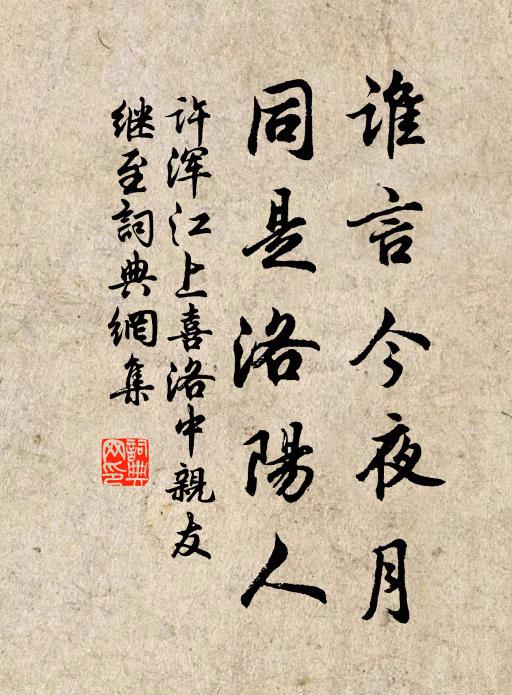 谁言今夜月
同是洛陽人
许渾江上喜洛中親友
继至詞典網集
詞典
网印